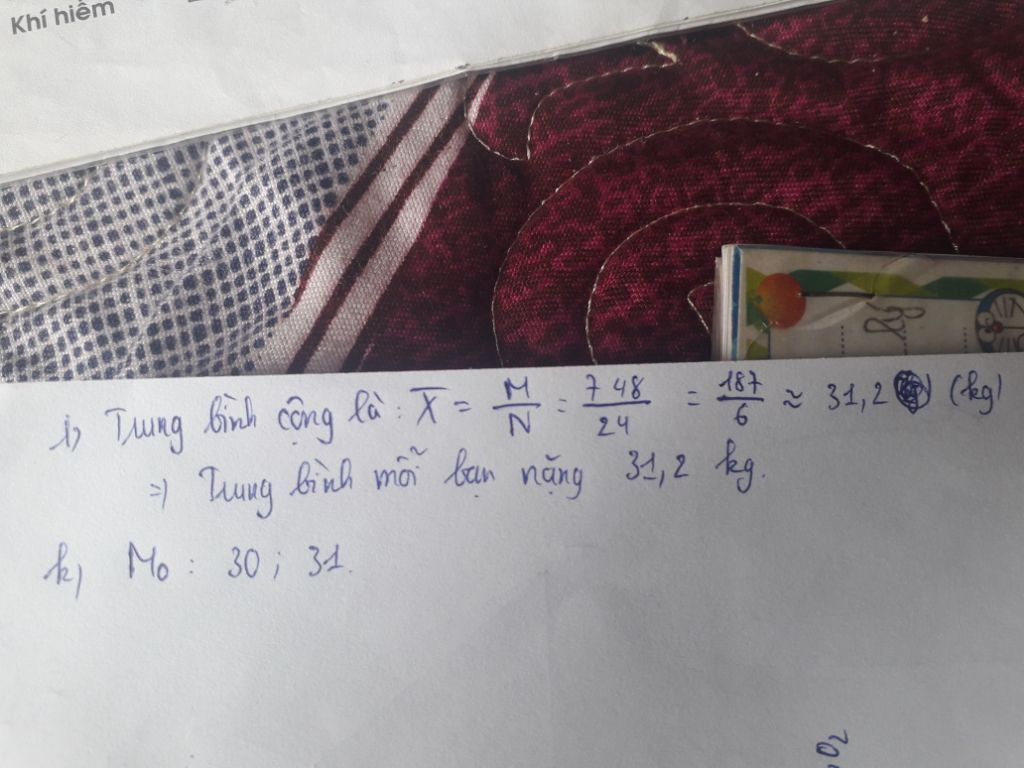 Khí hiếm
i) Trung bình cộng là: X̄ = M/N = 748/24 = 187/6 ≈ 31,2 (kg)
=) Trung bình mỗi bạn nặng 31,2 kg.
k) M₀ : 30 ; 31.
O₂